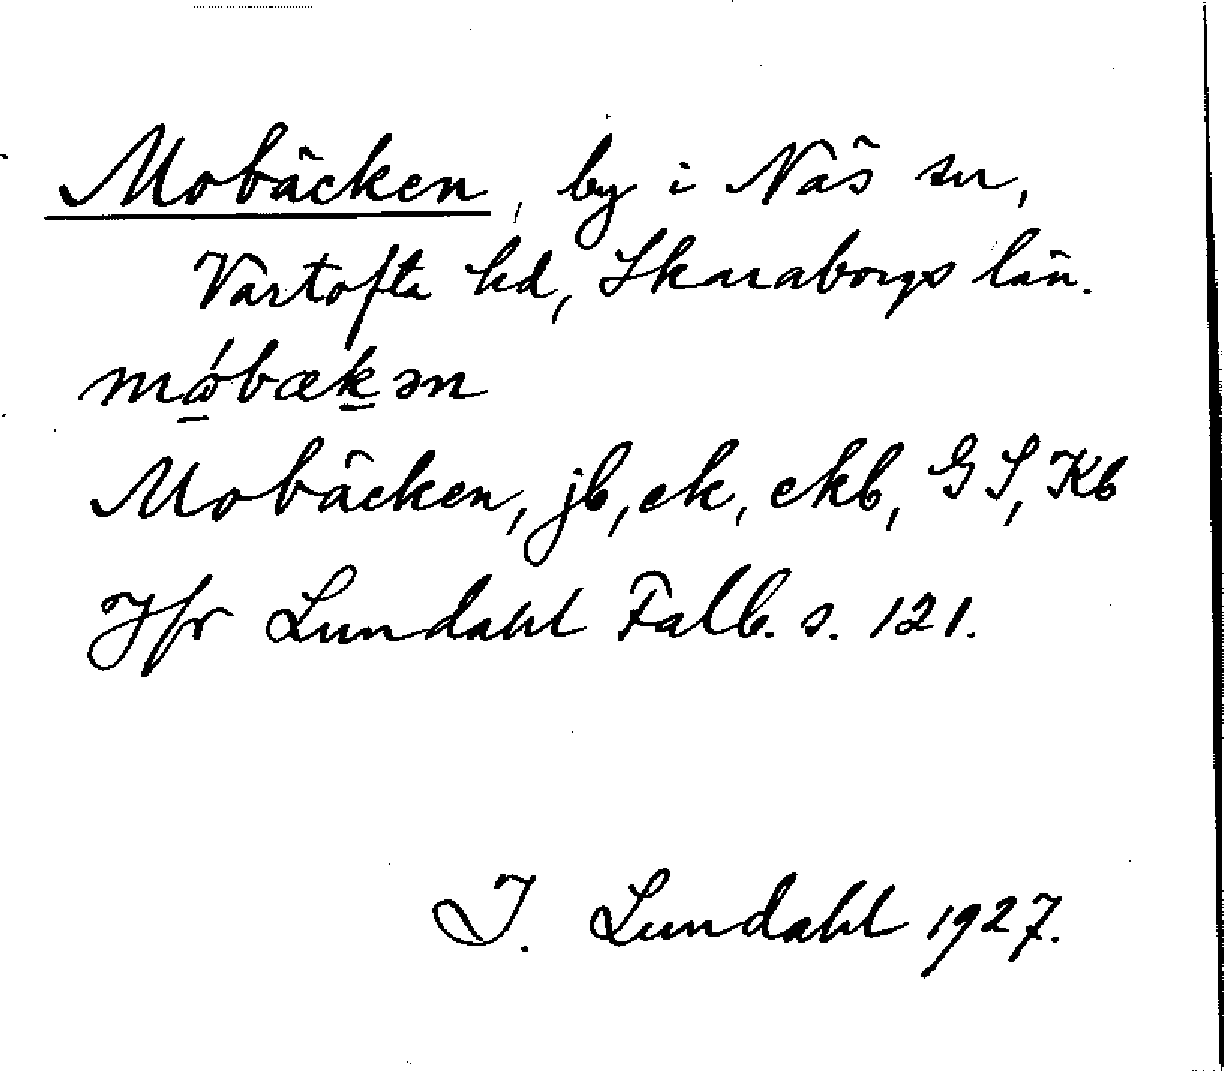 Mobäcken, by i Näs sn,
Vartofta hd, Skaraborgs län.
mǿ̱bæḵən
Mobäcken, jb, ek, ekb, GS, Kb
Jfr Lundahl Falb. s. 121.
I. Lundahl 1927.